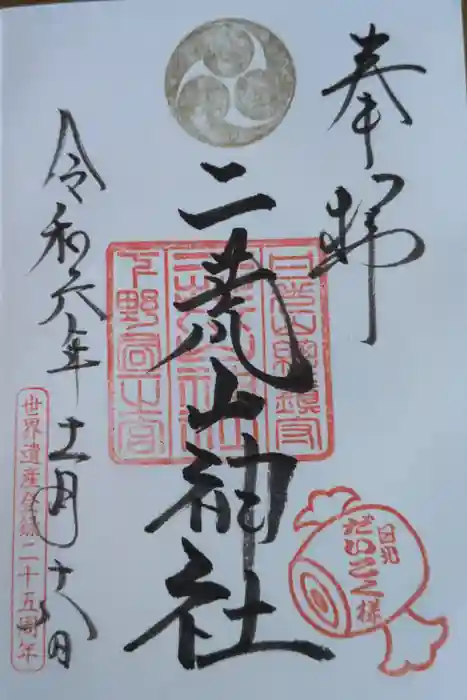 奉拝
日光山総鎮守
二荒山神社
二荒山神社
下野国一之宮
令和元年十一月十八日
世界遺産登録二十五周年
日光
だいこく様